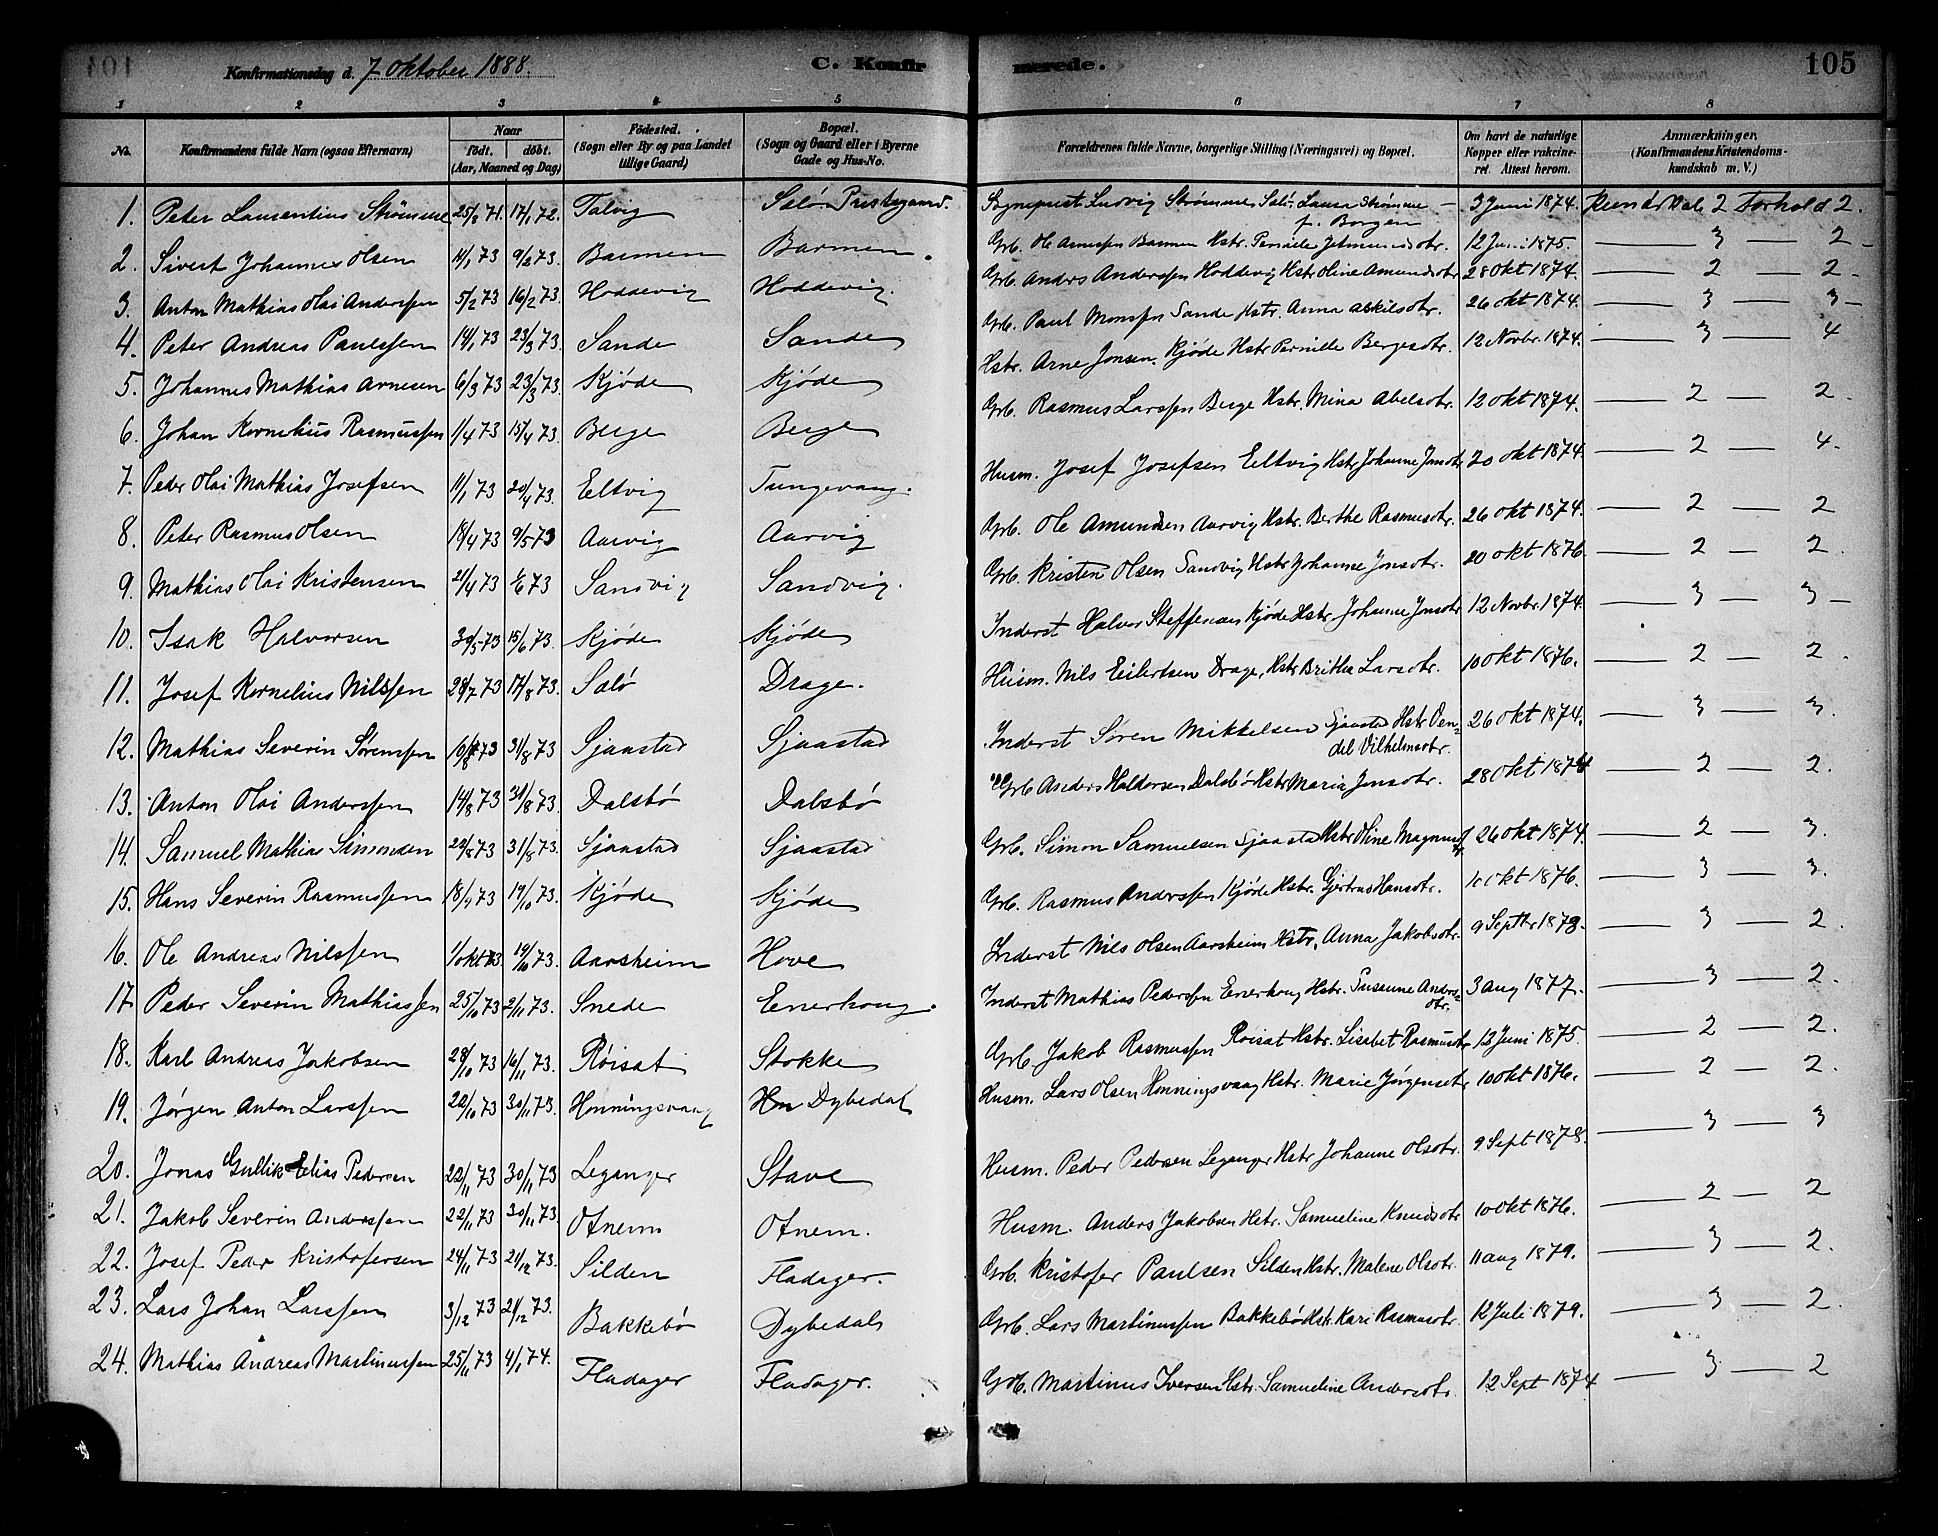 Konfirmationsdag d. 7 Oktober 1888. C. Konfirmerede. 105
1 2 3 4 5 6 7 8
No. Konfirmandens fulde Navn (ogsaa Efternavn) Naar födt. döbt. (Aar, Maaned og Dag) Födested. (Sogn eller By og paa Landet tillige Gaard) Bopæl. (Sogn og Gaard eller i Byerne Gade og Hus-No. Forældrenes fulde Navne, borgerlige Stilling (Næringsvei) og Bopæl. Om havt de naturlige Kopper eller vakcineret. Attest herom. Anmærkninger. (Konfirmandens Kristendomskundskab m. V.)
1. Peter Laurentius Strømme 25/8 71. 17/1 72. Talvig Selö Prestegaard. Sogneprest Ludvig Strømme, Selö - Laura Strømme f. Borgen 3 Juni 1874. Kundskab 2 Forhold 2.
2. Sivert Johannes Olsen 11/1 73 9/2 73. Barmen Barmen. Grb. Ole Arnessen Barmen Hstr. Pernille Jetmundsdtr. 12 Juni 1875. 3 2
3. Anton Mathias Olai Anderssen 5/2 73 16/2 73. Hoddevig Hoddevig. Grb. Anders Anderssen Hoddevig Hstr Oline Amundsdtr 28 Okt 1874. 2 2
4. Peter Andreas Paulssen 14/1 73 23/3 73. Sande Sande Grb. Paul Monssen Sande Hstr. Anna Askilsdtr. 26 okt 1874. 3 3
5. Johannes Mathias Arnesen 6/3 73 23/3 73. Kjöde Kjöde Hstr. Arne Jonsen. Kjöde Hstr Pernille Bergesdtr. 12 Novbr. 1874. 3 4
6. Johan Kornelius Rasmussen 1/4 73 15/4 73. Berge Berge Grb. Rasmus Larssen Berge Hstr. Mina Abelsdtr. 12 okt 1874. 2 2.
7. Peder Olai Mathias Josefsen 11/1 73 20/4 73. Eltvig Tungevang. Husm. Josef Josefsen Eltvig Hstr Johanne Jonsdtr 20 okt 1874. 2 4.
8. Peter Rasmus Olsen 18/4 73 9/5 73 Aarvig Aarvig Grb. Ole Amundsen Aarvig Hstr. Berthe Rasmusdtr. 26 okt 1874. 2 2
9. Mathias Olai Kristensen 21/4 73 1/6 73 Sandvig Sandvig. Grb. Kristen Olsen Sandvig Hstr Johanne Jonsdtr. 20 okt 1876. 2 2.
10. Isak Halvorsen 30/5 73 15/6 73. Kjöde Kjöde Inderst Halvor Steffensen Kjöde Hstr. Johanne Jonsdtr 12 Novbr. 1874. 3 3
11. Josef Kornelius Nilssen 28/7 73 17/8 73. Selö Drage. Husm. Nils Eilertsen Drage, Hstr Brithe Larsdtr. 10 okt 1876. 2 2.
12. Mathias Severin Sørenssen 10/8 73 31/8 73 Sjaastad Sjaastad Inderst Søren Mikkelsen Sjaastad Hstr Vendel Vilhelmsdtr. 26 okt 1874. 3 3.
13. Anton Olai Anderssen 14/8 73 31/8 73. Dalsbö Dalsbö Grb Anders Haldorsen Dalsbö Hstr Maria Jonsdtr. 28 okt 1874 2 2.
14. Samuel Mathias Simonsen 22/8 73 31/8 73. Sjaastad Sjaastad Grb. Simon Samuelsen Sjaastad Hstr Oline Magnusd. 26 okt 1874. 2 3.
15. Hans Severin Rasmussen 18/7 73 19/10 73. Kjöde Kjöde Grb. Rasmus Anderssen Kjöde Hstr. Gjertrud Hansdtr. 10 okt 1876. 3 3.
16. Ole Andreas Nilssen 1/okt 73. 19/10 73. Aarsheim Hove Inderst Nils Olsen Aarsheim Hstr, Anna Jakobsdtr. 9 Septbr 1878. 3 2.
17. Peder Severin Mathiassen 25/10 73 2/11 73. Snede Enerhoug. Inderst Mathias Pederssen Enerhoug Hstr. Susanne Andersdtr. 3 aug 1877. 3 2.
18. Karl Andreas Jakobsen 28/10 73 16/11 73. Röisat Stokke Grb. Jakob Rasmussen Röisat Hstr. Lisabet Rasmusdtr 13 Juni 1875. 2 2.
19. Jørgen Anton Larssen 22/10 73 30/11 73. Honningsvaag Dybedal Husm. Lars Olsen Honningsvaag Hstr. Marie Jørgensdtr 10 okt 1876. 2 2.
20. Jonas Gullik Elias Pedersen 22/11 73 30/11 73 Leganger Stave Husm. Peder Pedersen Leganger Hstr Johanne Olsdtr. 9 Sept 1878. 3 3
21. Jakob Severin Anderssen 22/11 73 30/11 73. Otnem Otnem. Husm. Anders Jakobsen Hstr. Samueline Knudsdtr 10 okt 1876. 2 2
22. Josef Peder Kristofersen 24/11 73 21/12 73. Silden Fladager. Grb. Kristofer Paulsen Silden Hstr. Malene Olsdtr. 11 aug 1879. 3 2.
23. Lars Johan Larssen 3/12 73 21/12 73. Bakkebö Dybedal Grb. Lars Martinussen Bakkebö Hstr. Kari Rasmusdtr. 12 Juli 1879. 3 2.
24. Mathias Andreas Martinussen 25/11 73 4/1 74. Fladager Fladager. Grb. Martinus Iversen Hstr. Samueline Andersdtr. 12 Sept 1874 3 2